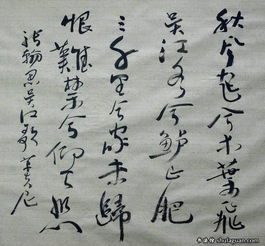 秋风起兮木葉飛
吴江水兮鲈正肥
三千里兮家未歸
恨難禁兮仰天悲
張翰思吴江歌
shufaguan.com